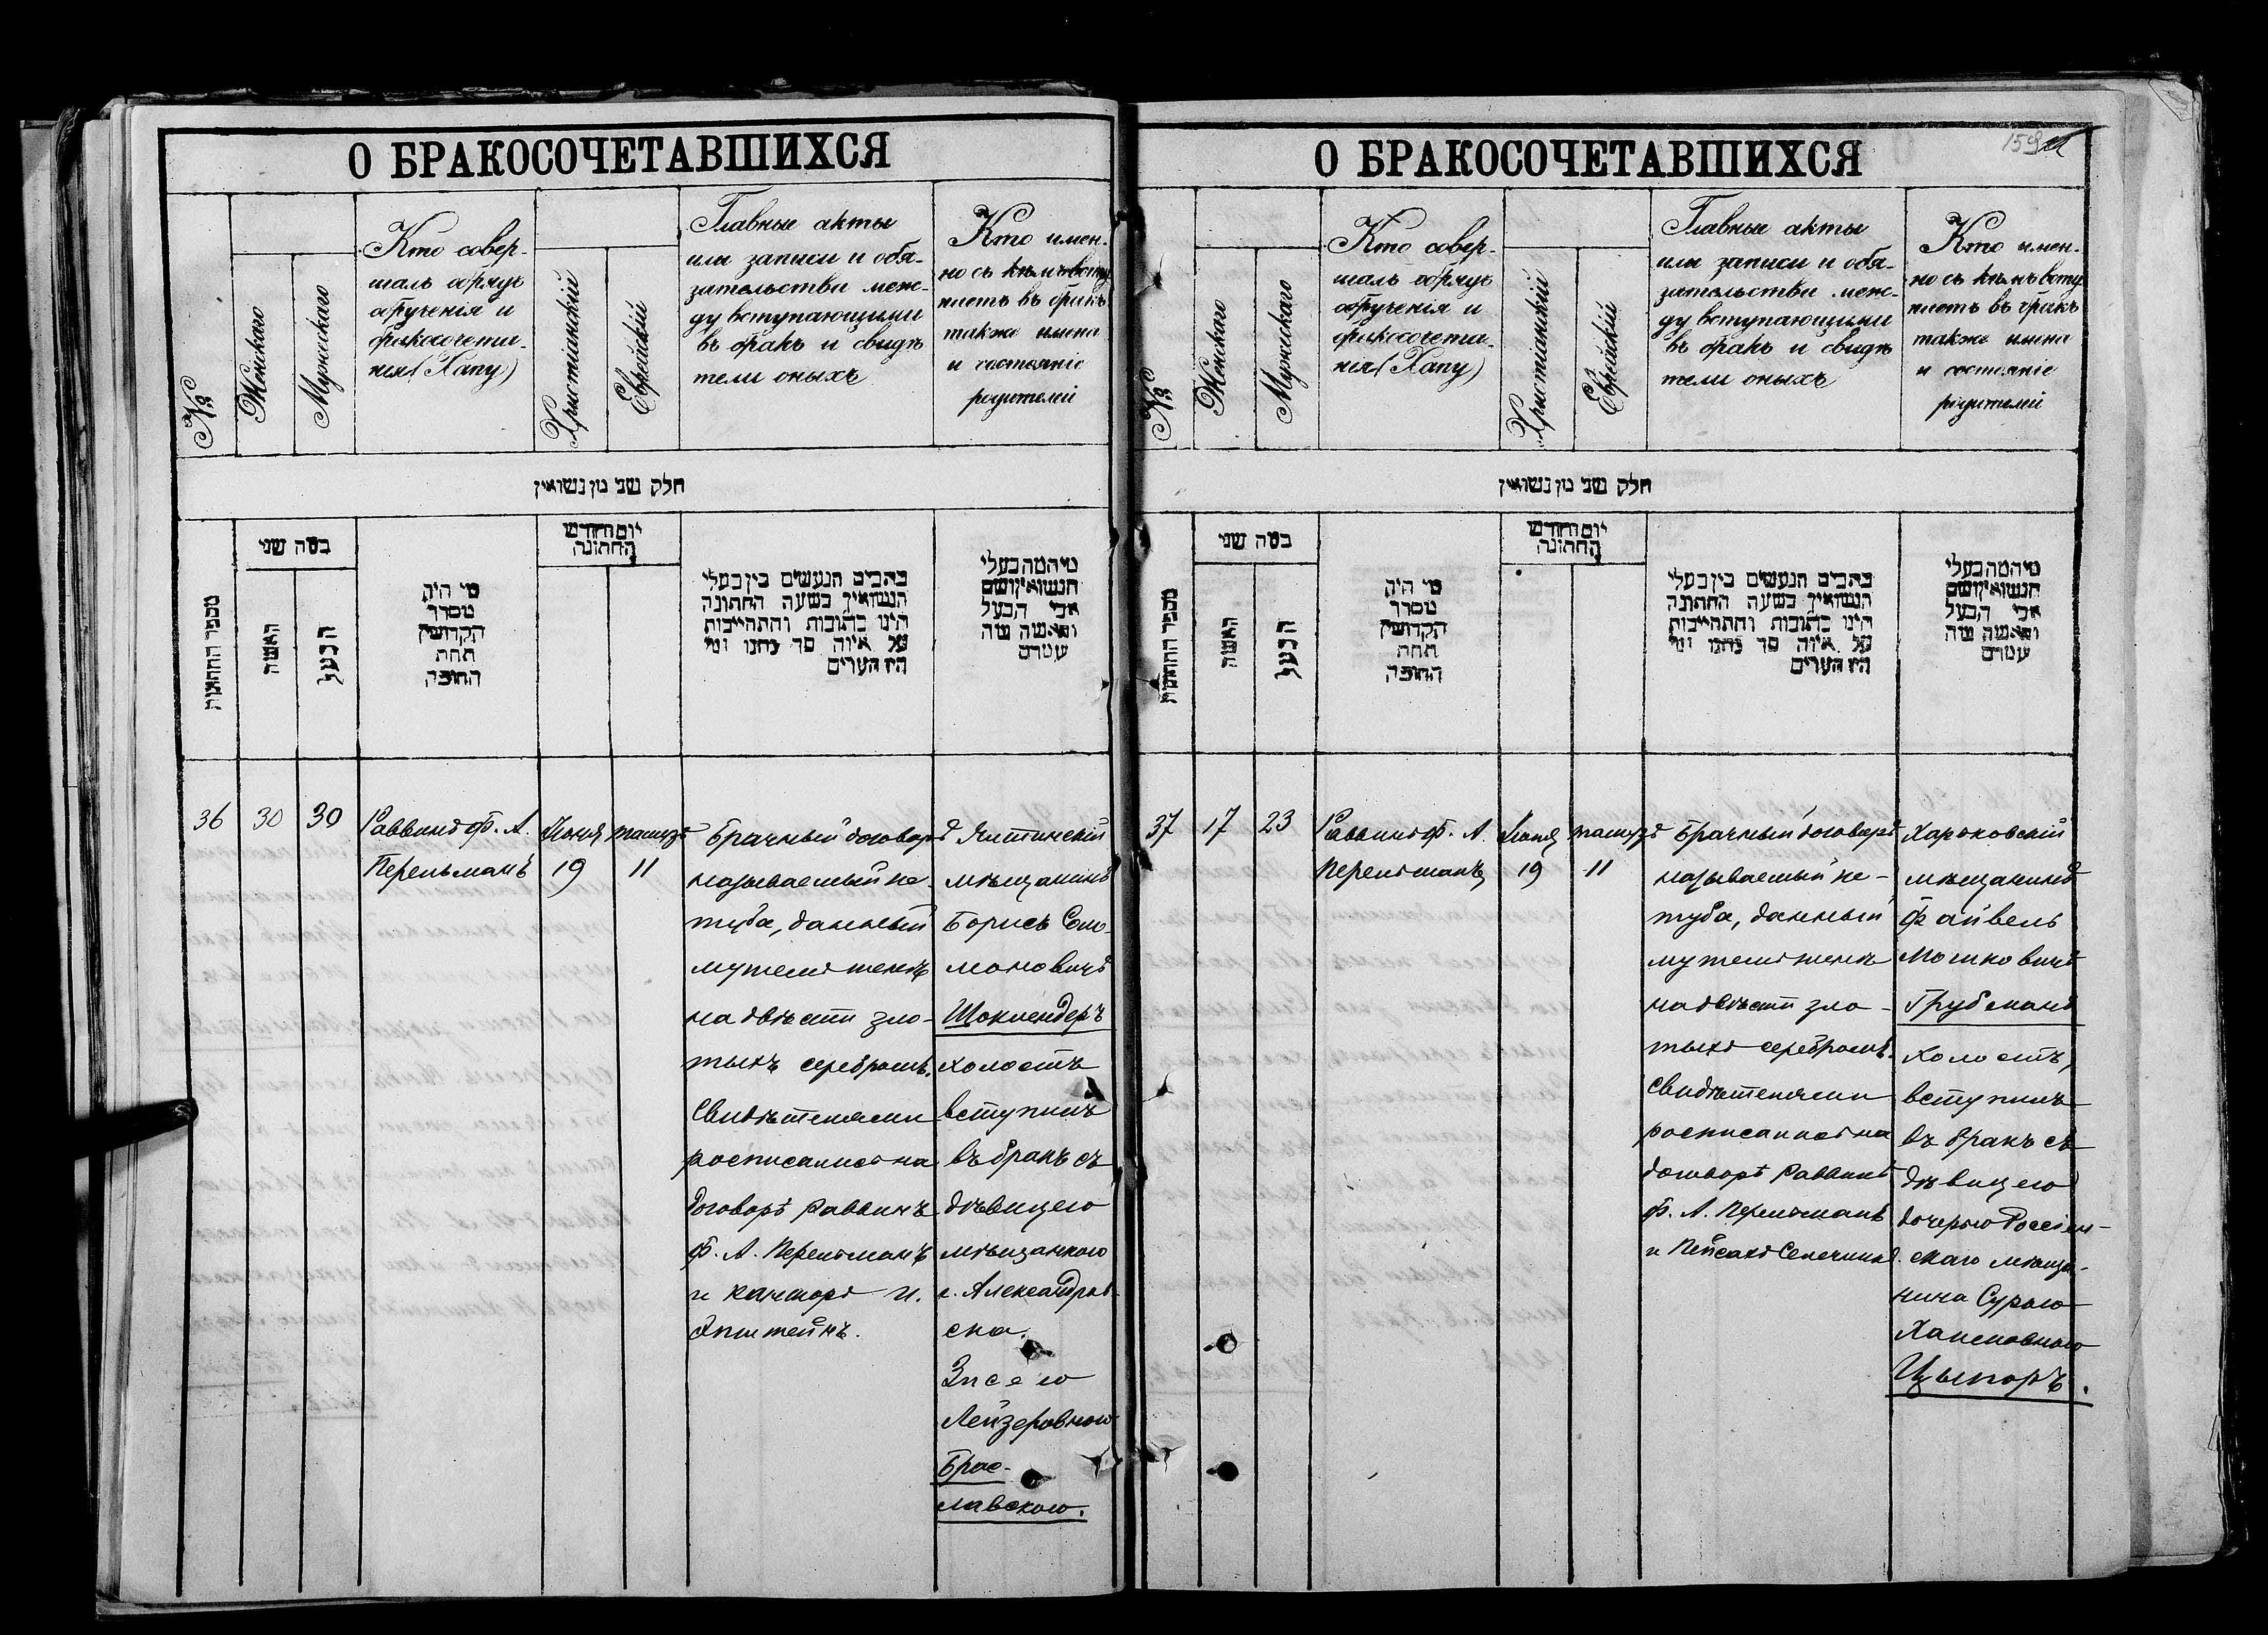 О БРАКОСОЧЕТАВШИХСЯ
№
Женскаго
Мужескаго
Кто совер-
шалъ обрядъ
обрученія и
бракосочета-
нія (Хапу)
Христіанскій
Еврейскій
Главные акты
или записи и обя-
зательства меж-
ду вступающими
въ бракъ и свидѣ
тели оныхъ
Кто имен-
но съ кѣмъ всту
паетъ въ бракъ
также имена
и состояніе
родителей
חלק שני מן נשואין
מספר החתונות
במה שני
האשה
הבעל
מי היה
מסדר
הקדושין
תחת
החופה
יום וחודש
החתונה
כתבים הנעשים בין בעלי
הנשואין בשעה החתונה
היינו כתובות והתחייבות
על איזה סך נתנו ומי
היו הערים
מי המה בעלי
הנשואין ושם
אבי הבעל
והאשה מה
עמדם
36
30
30
Раввинъ Ф. А.
Перельманъ
Іюня
19
тамузъ
11
Брачный договоръ
называемый ке-
туба, данный
мужемъ женѣ
на двѣсти зло-
тыхъ серебромъ.
Свидѣтелями
росписались на
договорѣ раввинъ
Ф. А. Перельманъ
и канторъ И.
Эпштейнъ.
Ялтинскій
мѣщанинъ
Борисъ Соло-
моновичъ
Шоклендеръ
холостъ
вступилъ
въ бракъ съ
дѣвицею
мѣщанкою
г. Александров-
ска.
Зисею
Лейзеровною
Брас-
лавскою.
О БРАКОСОЧЕТАВШИХСЯ
159
№
Женскаго
Мужескаго
Кто совер-
шалъ обрядъ
обрученія и
бракосочета-
нія (Хапу)
Христіанскій
Еврейскій
Главные акты
или записи и обя-
зательства меж-
ду вступающими
въ бракъ и свидѣ
тели оныхъ
Кто имен-
но съ кѣмъ всту
паетъ въ бракъ
также имена
и состояніе
родителей
חלק שני מן נשואין
מספר החתונות
במה שני
האשה
הבעל
מי היה
מסדר
הקדושין
תחת
החופה
יום וחודש
החתונה
כתבים הנעשים בין בעלי
הנשואין בשעה החתונה
היינו כתובות והתחייבות
על איזה סך נתנו ומי
היו הערים
מי המה בעלי
הנשואין ושם
אבי הבעל
והאשה מה
עמדם
37
17
23
Раввинъ Ф. А.
Перельманъ
Іюня
19
тамузъ
11
Брачный договоръ
называемый ке-
туба, данный
мужемъ женѣ
на двѣсти зло-
тыхъ серебромъ.
Свидѣтелями
росписались на
договорѣ раввинъ
Ф. А. Перельманъ
и Пейсахъ
Харьковскій
мѣщанинъ
Файвель
Мошковичъ
Грубманъ
холостъ,
вступилъ
въ бракъ съ
дѣвицею
дочерью Россіен-
скаго мѣща-
нина Сурою
Хаимовною
Цыпоръ.